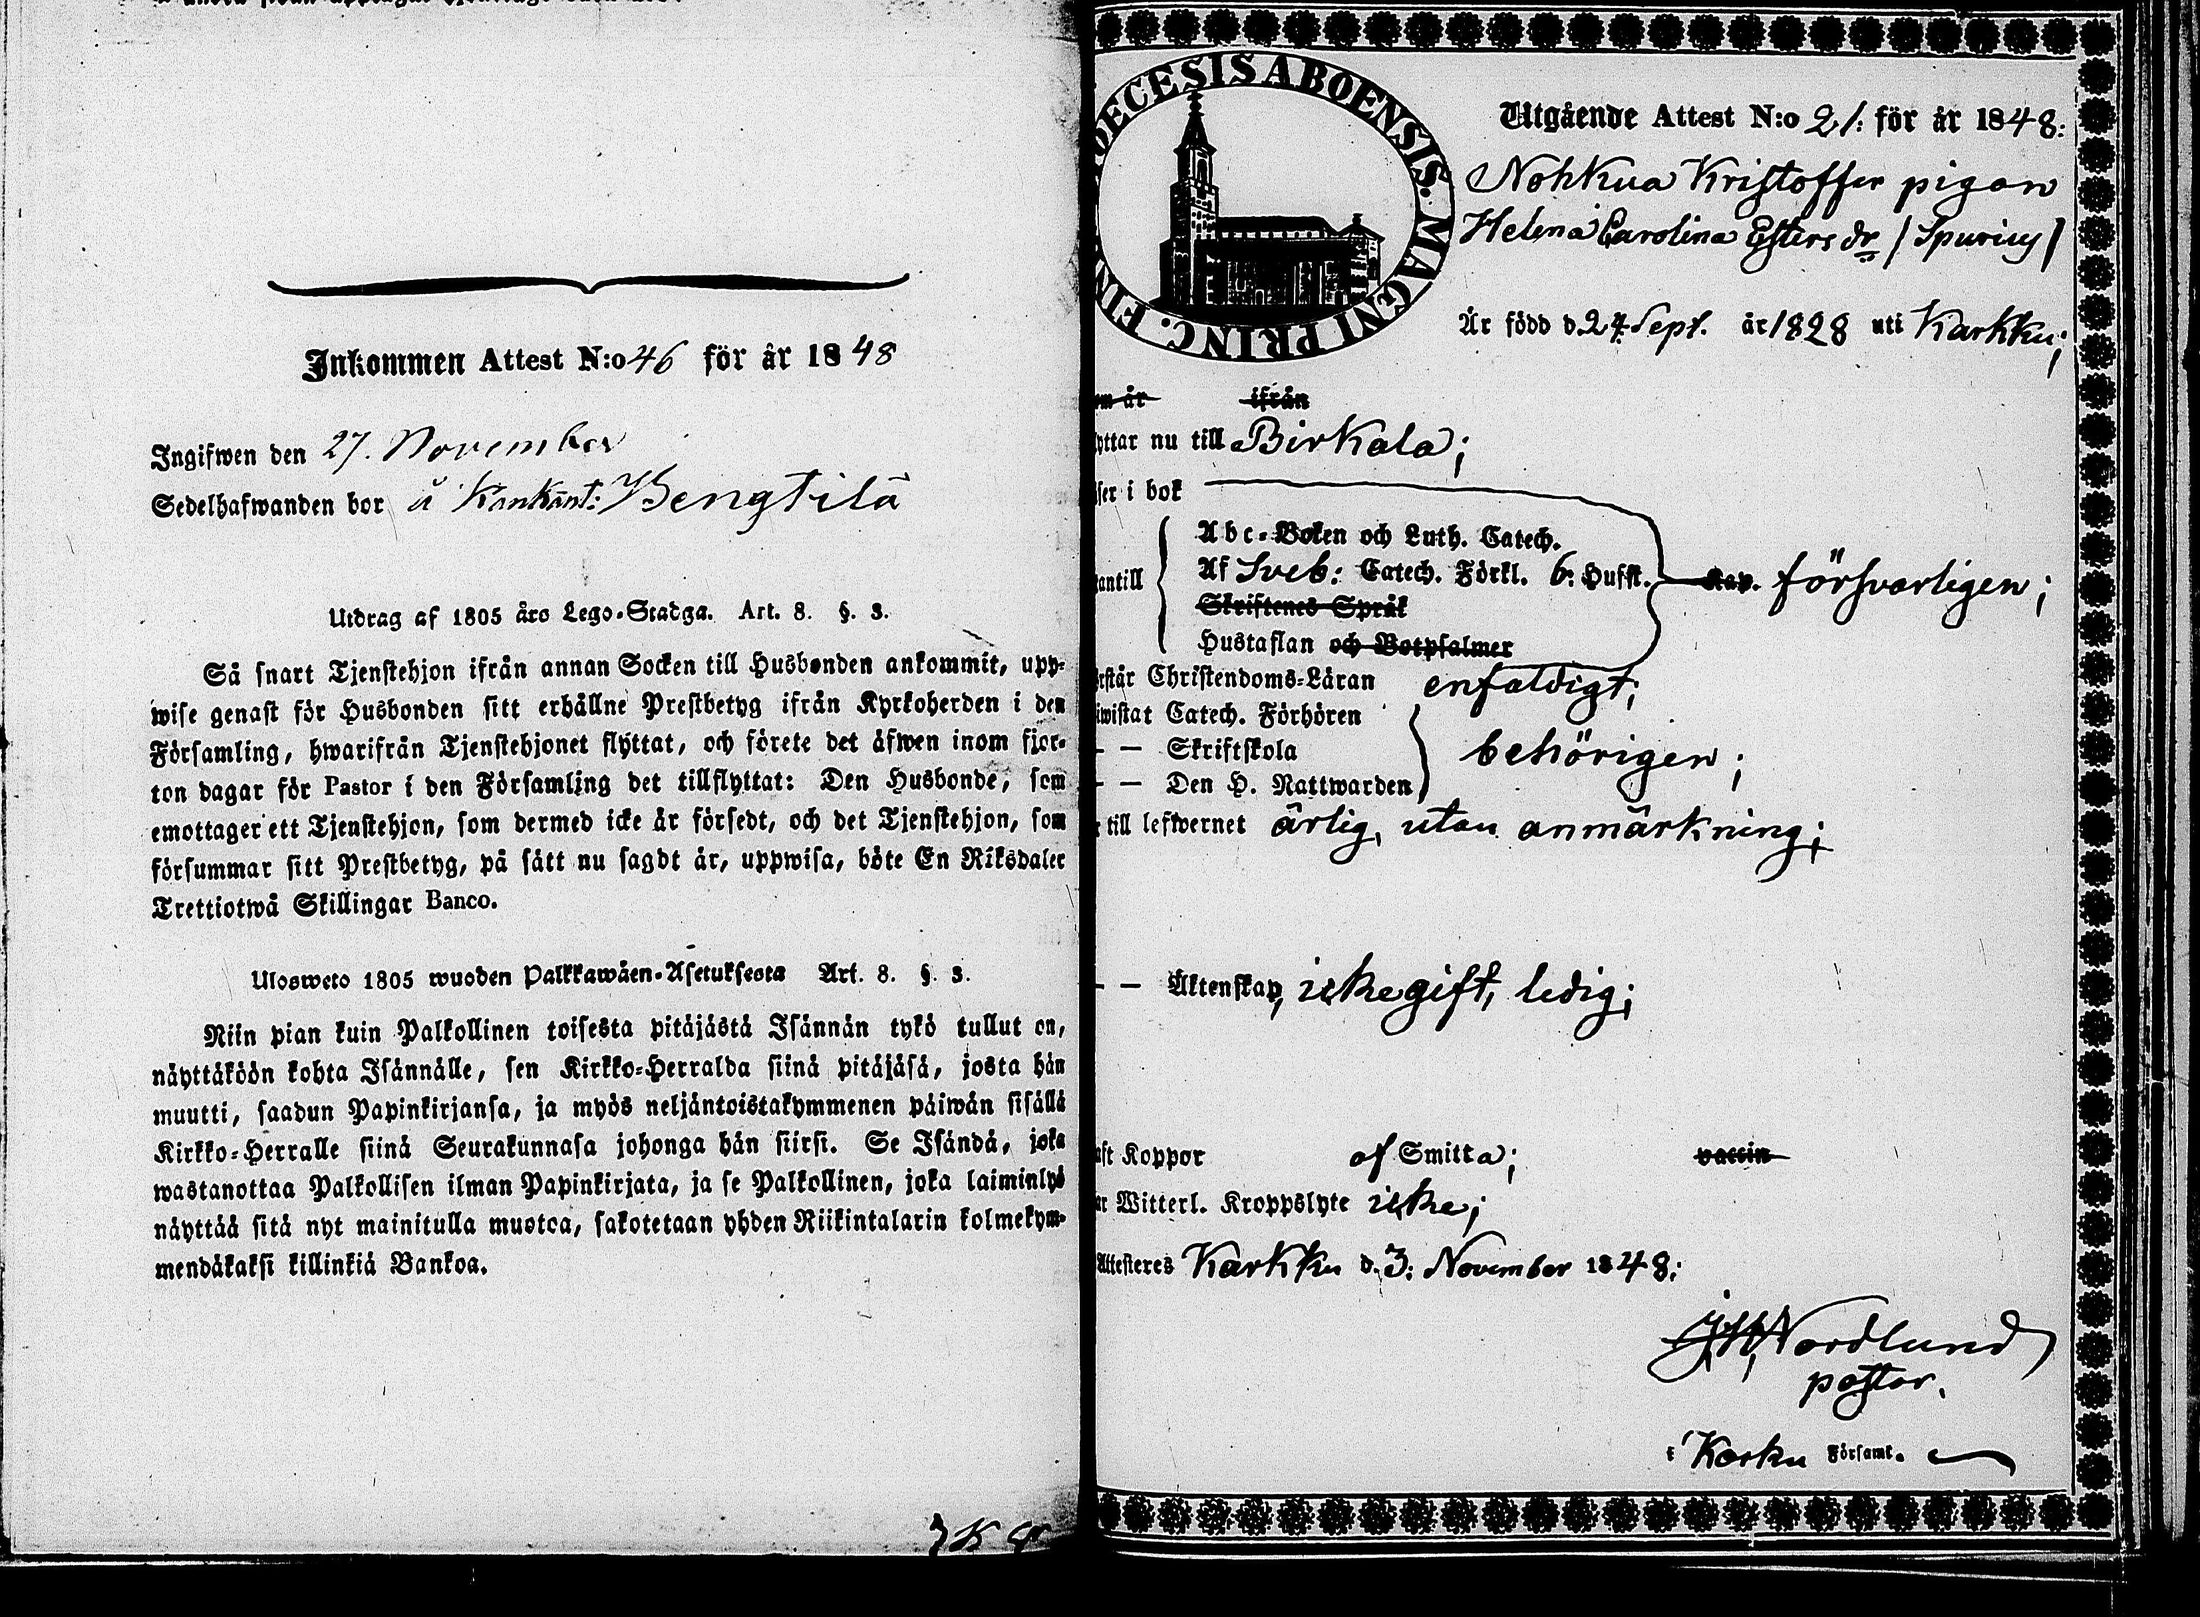 Inkommen Attest N:o 46 för år 1848
Ingifwen den 27. November
Sedelhafwanden bor å Kankant: Bengtilä
Utdrag af 1805 års Lego-Stadga. Art. 8. §. 3.
Så snart Tjenstehjon ifrån annan Socken till Husbonden ankommit, upp-
wise genast för Husbonden sitt erhållne Prestbetyg ifrån Kyrkoherden i den
Församling, hwarifrån Tjenstehjonet flyttat, och förete det äfwen inom fjor-
ton dagar för Pastor i den Församling det tillflyttat: Den Husbonde, som
emottager ett Tjenstehjon, som dermed icke är försedt, och det Tjenstehjon, som
försummar sitt Prestbetyg, på sätt nu sagdt är, uppwisa, böte En Riksdaler
Trettiotwå Skillingar Banco.
Ulosweto 1805 wuoden Palkkawäen-Asetuksesta Art. 8. §. 3.
Niin pian kuin Palkollinen toisesta pitäjästä Isännän tykö tullut on,
näyttäköön kohta Isännälle, sen Kirkko-Herralda siinä pitäjäsä, josta hän
muutti, saadun Papinkirjansa, ja myös neljäntoistakymmenen päiwän sisällä
Kirkko-Herralle siinä Seurakunnasa johonga hän siirsi. Se Isändä, joka
wastanottaa Palkollisen ilman Papinkirjata, ja se Palkollinen, joka laiminlyö
näyttää sitä nyt mainitulla muotoa, sakotetaan yhden Riikintalarin kolmekym-
mendäkaksi killinkiä Bankoa.
DECESIS ABOENSIS. MAGNI PRINC. FIN
Utgående Attest N:o 21: för år 1848:
Nohkua Kristoffer pigan
Helena Carolina Esters dr / Spurius /
Är född d. 24 Sept. år 1828 uti Karkku;
om år ifrån
yttar nu till Birkala;
äser i bok
Abc-Boken och Luth. Catech.
antill Af Sveb: Catech. Förkl. 6: Hufst. Kap. försvarligen;
Skriftenes Språk
Hustaflan och Botpsalmer
rstår Christendoms-Läran enfaldigt;
iwistat Catech. Förhören
— — Skriftskola behörigen;
— — Den H. Nattwarden
r till lefwernet ärlig, utan anmärkning;
— — Äktenskap, icke gift, ledig;
aft Koppor af Smitta; vaccin
ar Witterl. Kroppslyte icke;
Attesteres Karkku d. 3: November 1848:
J H Nordlund
pastor.
i Karku Församl.